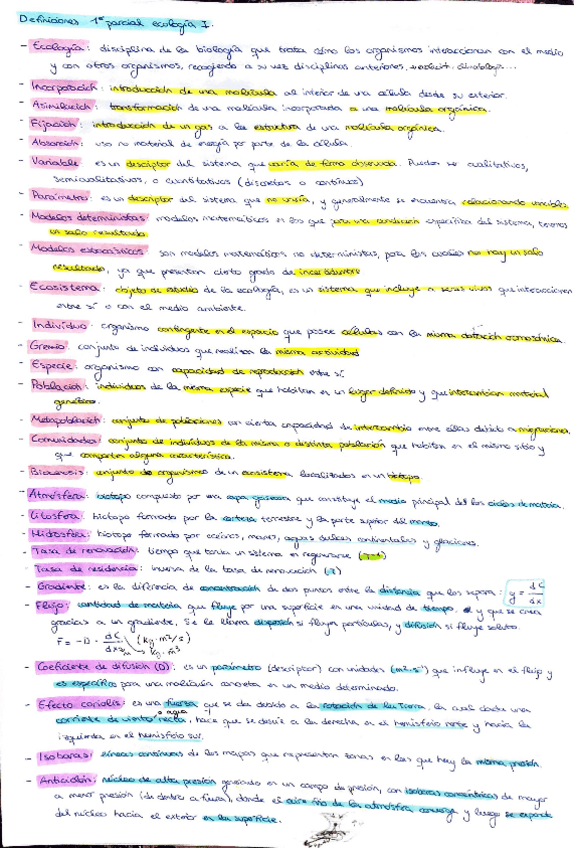 Definiciones 1er parcial ecología I.
- Ecología: disciplina de la biología que trata cómo los organismos interaccionan con el medio
y con otros organismos, recogiendo a su vez disciplinas anteriores,
- Incorporación: introducción de una molécula al interior de una célula desde su exterior.
- Asimilación: transformación de una molécula incorporada a una molécula orgánica.
- Fijación: introducción de un gas a la estructura de una molécula orgánica.
- Absorción: uso no material de energía por parte de la célula.
- Variable es un descriptor del sistema que varía de forma observada. Pueden ser cualitativas,
semicualitativas, o cuantitativas (discretas o continuas)
- Parámetro: es un descriptor del sistema que no varía, y generalmente se encuentra relacionando variables.
- Modelos deterministas: modelos matemáticos en los que para una condición específica del sistema, tenemos
un solo resultado
- Modelos estocásticos: son modelos matemáticos no deterministas, para los cuales no hay un solo
resultado, ya que presentan cierto grado de incertidumbre
- Ecosistema: objeto de estudio de la ecología, es un sistema que incluye a seres vivos que interaccionan
entre sí o con el medio ambiente.
- Individuo: organismo contingente en el espacio que posee células con la misma dotación cromosómica.
- Gremio: conjunto de individuos que realizan la misma actividad
- Especie: organismo con capacidad de reproducción entre sí.
- Población: individuos de la misma especie que habitan en un lugar definido y que intercambian material
genético.
- Metapoblación: conjunto de poblaciones con cierta capacidad de intercambio entre ellas debido a migraciones.
- Comunidades: conjunto de individuos de la misma o distinta población que habitan en el mismo sitio y
que comparten alguna característica.
- Biocenosis: conjunto de organismos de un ecosistema localizados en un biotopo
- Atmósfera: biotopo compuesto por una capa gaseosa que constituye el medio principal de los ciclos de materia.
- Litosfera: biotopo formado por la corteza terrestre y la parte superior del manto.
- Hidrosfera: biotopo formado por océanos, mares, aguas dulces continentales y glaciares.
- Tasa de renovación: tiempo que tarda un sistema en regenerarse
- Tasa de residencia: inversa de la tasa de renovación
- Gradiente: es la diferencia de concentración de dos puntos entre la distancia que los separa: y = dC/dx
- Flujo: cantidad de materia que fluye por una superficie en una unidad de tiempo, y que se crea
gracias a un gradiente. Se le llama dispersión si fluyen partículas, y difusión si fluye soluto.
F = -D · dC/dx (kg·m²/s)
- Coeficiente de difusión (D): es un parámetro (descriptor) con unidades (m²·s⁻¹) que influye en el flujo y
es específico para una molécula concreta en un medio determinado.
- Efecto coriolis: es una fuerza que se da debido a la rotación de la Tierra, la cual dada una
corriente de viento o agua recta, hace que se desvíe a la derecha en el hemisferio norte y hacia la
izquierda en el hemisferio sur.
- Isobaras: líneas continuas de los mapas que representan zonas en las que hay la misma presión.
- Anticiclón: núcleo de alta presión generado en un campo de presión, con isobaras concéntricas de mayor
a menor presión (de dentro a fuera), donde el aire frío de la atmósfera converge y luego se reparte
del núcleo hacia el exterior en la superficie.